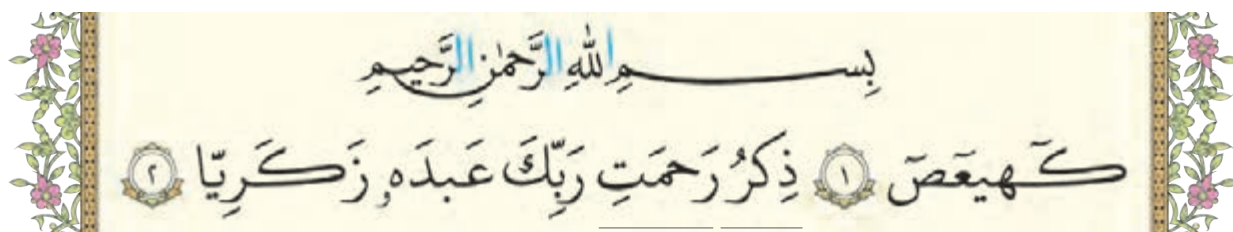 بِسـمِ اللّٰهِ الرَّحمٰنِ الرَّحيمِ
كٓهيعٓصٓ ﴿١﴾ ذِكرُ رَحمَتِ رَبِّكَ عَبدَهۥ زَكَرِيّا ﴿٢﴾